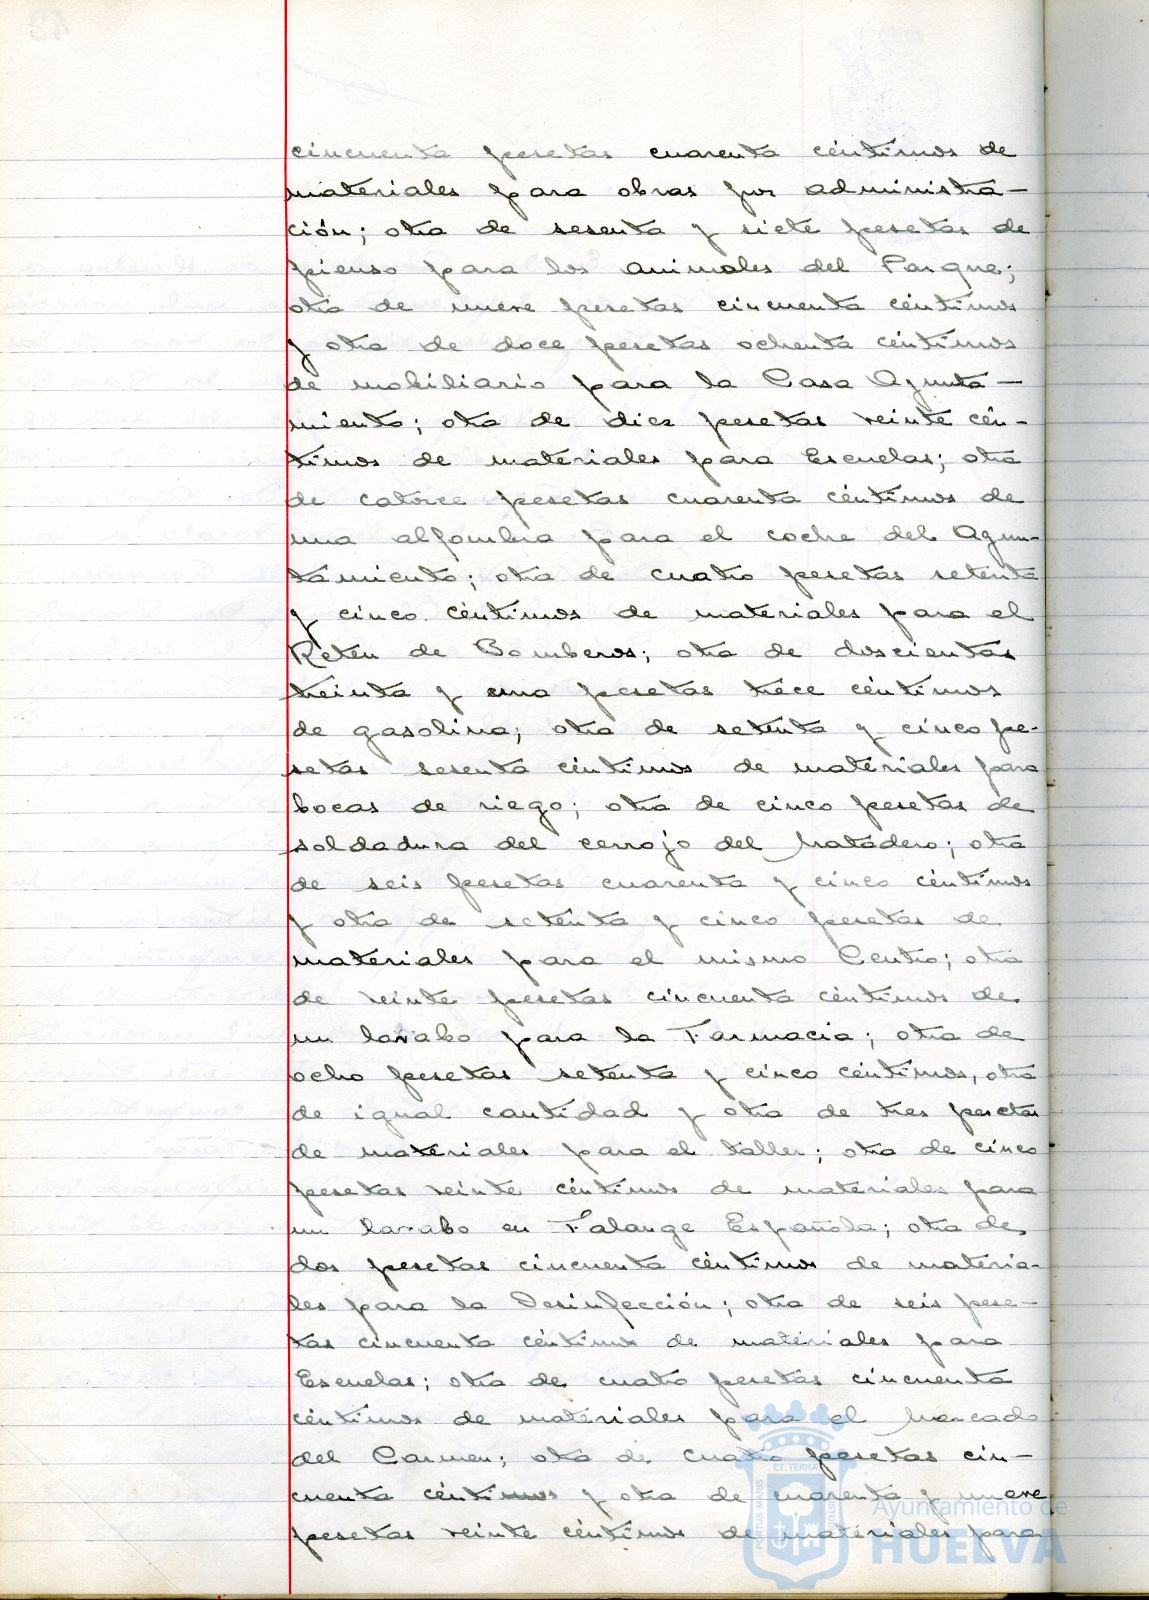 cincuenta pesetas cuarenta céntimos de
materiales para obras por administra-
ción; otra de sesenta y siete pesetas de
pienso para los animales del Parque;
otra de nueve pesetas cincuenta céntimos
y otra de doce pesetas ochenta céntimos
de mobiliario para la Casa Ayunta-
miento; otra de diez pesetas veinte cén-
timos de materiales para Escuelas; otra
de catorce pesetas cuarenta céntimos de
una alfombra para el coche del Ayun-
tamiento; otra de cuatro pesetas setenta
y cinco céntimos de materiales para el
Retén de Bomberos; otra de doscientas
treinta y una pesetas trece céntimos
de gasolina; otra de setenta y cinco pe-
setas sesenta céntimos de materiales para
bocas de riego; otra de cinco pesetas de
soldadura del cerrojo del Matadero; otra
de seis pesetas cuarenta y cinco céntimos
y otra de setenta y cinco pesetas de
materiales para el mismo Centro; otra
de veinte pesetas cincuenta céntimos de
un lavabo para la Farmacia; otra de
ocho pesetas setenta y cinco céntimos, otra
de igual cantidad y otra de tres pesetas
de materiales para el taller; otra de cinco
pesetas veinte céntimos de materiales para
un lavabo en Falange Española; otra de
dos pesetas cincuenta céntimos de materia-
les para la Desinfección; otra de seis pese-
tas cincuenta céntimos de materiales para
Escuelas; otra de cuatro pesetas cincuenta
céntimos de materiales para el Mercado
del Carmen; otra de cuatro pesetas cin-
cuenta céntimos y otra de cuarenta y nueve
pesetas veinte céntimos de materiales para
PORTUS MARIS
ET TERRAE
CUSTODIA
Ayuntamiento de
HUELVA